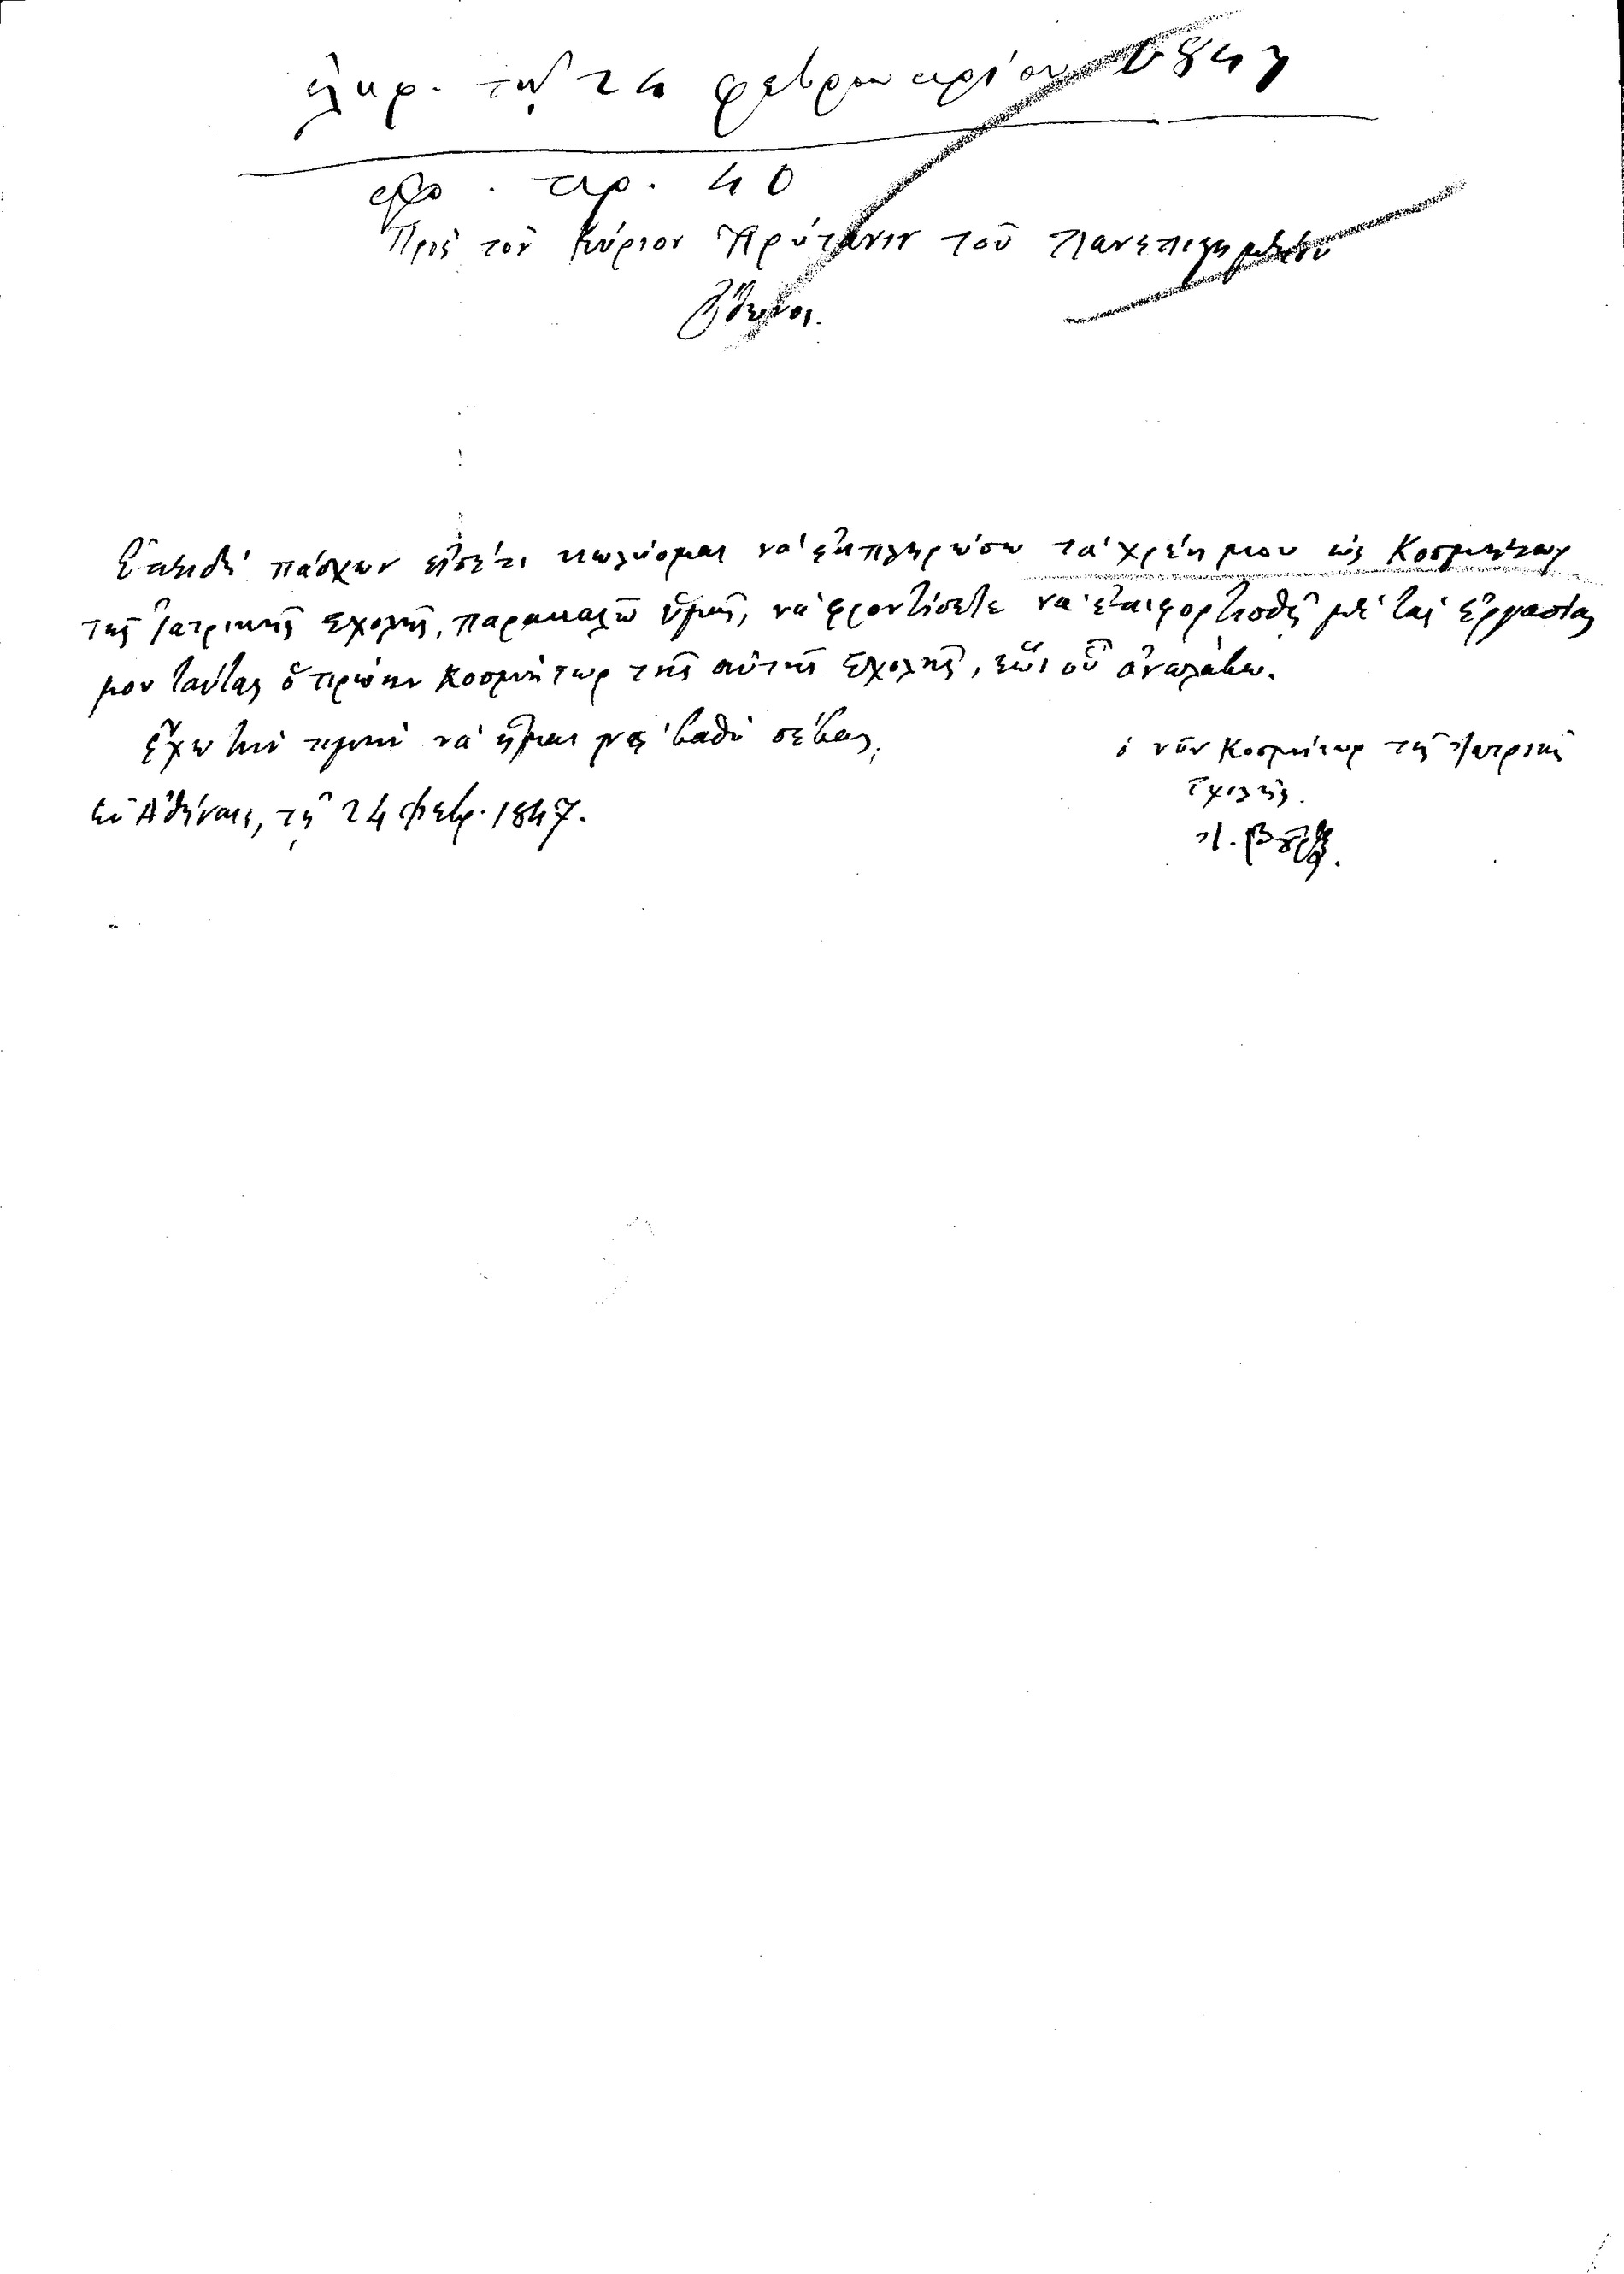 ἐλήφ. τῇ 24 φεβρουαρίου 1847
πρ. ἀρ. 40
Πρὸς τὸν Κύριον Πρύτανιν τοῦ Πανεπιστημίου
Ὄθωνος.
Ἐπειδὴ πάσχων εἰσέτι κωλύομαι νὰ ἐκπληρώσω τὰ χρέη μου ὡς Κοσμήτωρ
τῆς Ἰατρικῆς Σχολῆς, παρακαλῶ ὑμᾶς, νὰ φροντίσετε νὰ ἐπιφορτισθῇ μὲ τὰς ἐργασίας
μου ταύτας ὁ πρώην Κοσμήτωρ τῆς αὐτῆς Σχολῆς, ἕως οὗ ἀναλάβω.
Ἔχω τὴν τιμὴν νὰ ἦμαι μὲ βαθὺ σέβας,
ὁ νῦν Κοσμήτωρ τῆς Ἰατρικῆς
Σχολῆς.
Ἐν Ἀθήναις, τῇ 24 Φεβρ. 1847.